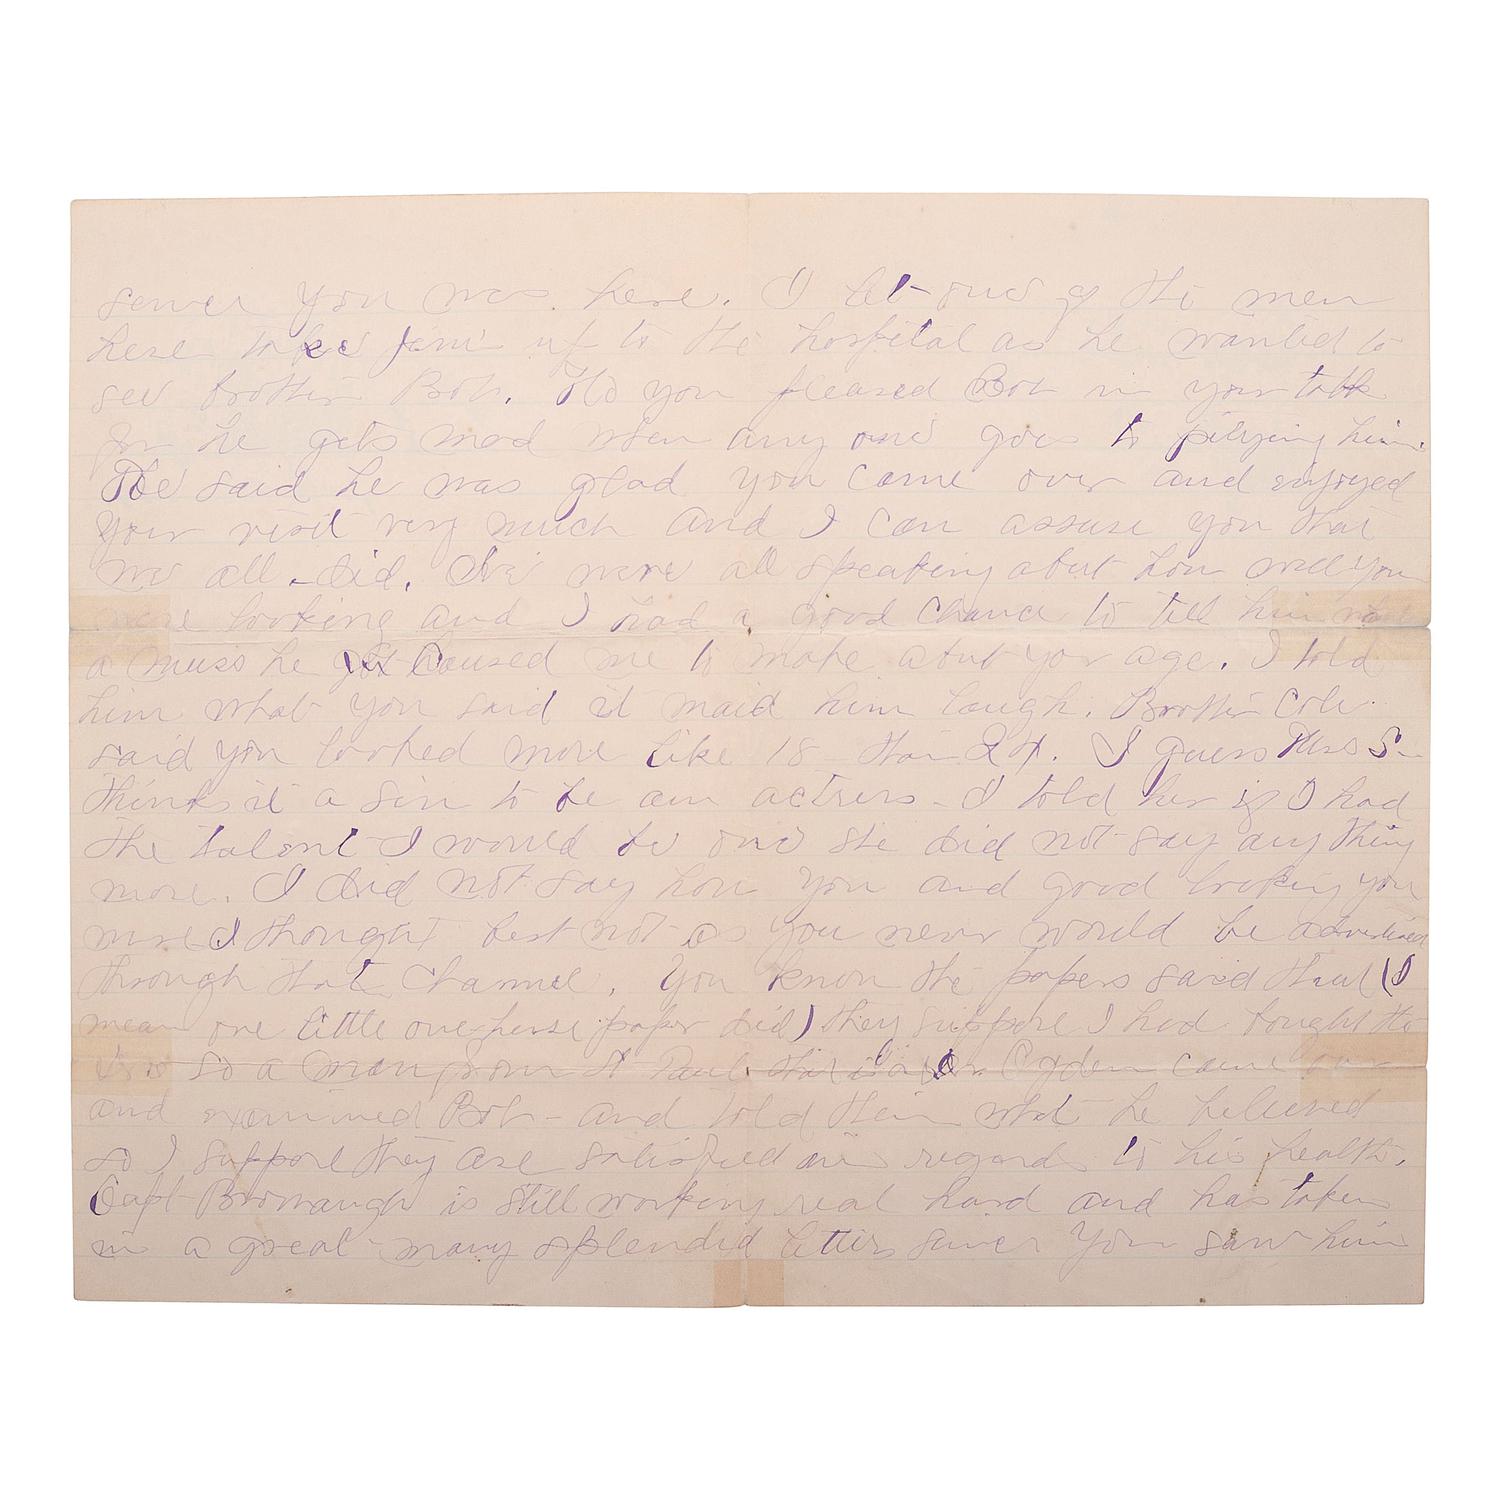 sence you was here. I let one of the men
here take Jim up to the hospital as he wanted to
see brother Bob. Old you pleased Bob in your talk
for he gets mad when any one goes to pitying him.
He said he was glad you came over and enjoyed
your visit very much and I can assure you that
we all did. We were all speaking about how well you
were looking and I had a good chance to tell him
a muss he caused me to make about yor age. I told
him what you said it maid him laugh. Brother Cole
said you looked more like 18 than 24. I guess Miss S—
thinks it a sin to be an actress - I told her if I had
the talent I would be one she did not say any thing
more. I did not say how you and good looking you
were I thought best not as you never would be advertised
through that channel. You know the papers said that (I
mean one little one-horse paper did) they suppose I had bought the
so a man from St Paul that is a Ogden came over
and examined Bob - and told them what he believed
so I suppose they are satisfied in regards to his health.
Capt Bronaugh is still working real hard and has taken
in a great many splendid letters sence you saw him